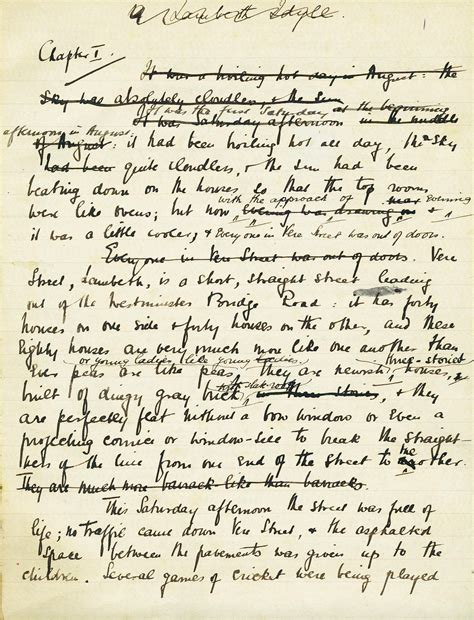 A Lambeth Idyll.
Chapter I.
It was a boiling hot day in August: the
sky was absolutely cloudless & the sun
It was the first Saturday at the beginning
It was Saturday afternoon in the middle
afternoon in August:
of August: it had been boiling hot all day, the sky
had been quite cloudless, & the sun had been
beating down on the houses, so that the top rooms
with the approach of evening
were like ovens; but now evening was drawing on &
it was a little cooler, & everyone in Vere Street was out of doors.
Everyone in Vere Street was out of doors. Vere
Street, Lambeth, is a short, straight street leading
out of the Westminster Bridge Road: it has forty
houses on one side & forty houses on the other, and these
eighty houses are very much more like one another than
or young ladies like young ladies. three-storied
ever peas are like peas, they are newish houses,
with slate roofs
built of dingy gray brick & they
are perfectly flat without a bow window or even a
projecting cornice or window-sill to break the straight-
ness of the line from one end of the street to the other.
They are much more barrack-like than barracks.
This Saturday afternoon the street was full of
life; no traffic came down Vere Street, & the asphalted
space between the pavements was given up to the
children. Several games of cricket were being played